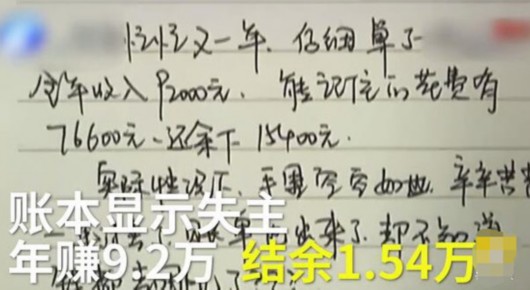 忙忙又一年，仔细算了
全年收入92000元，能记住的花费有
76600元、还余下15400元.
实际情况下，手里空空如也，辛辛苦苦
账本显示失主
年赚9.2万 结余1.54万